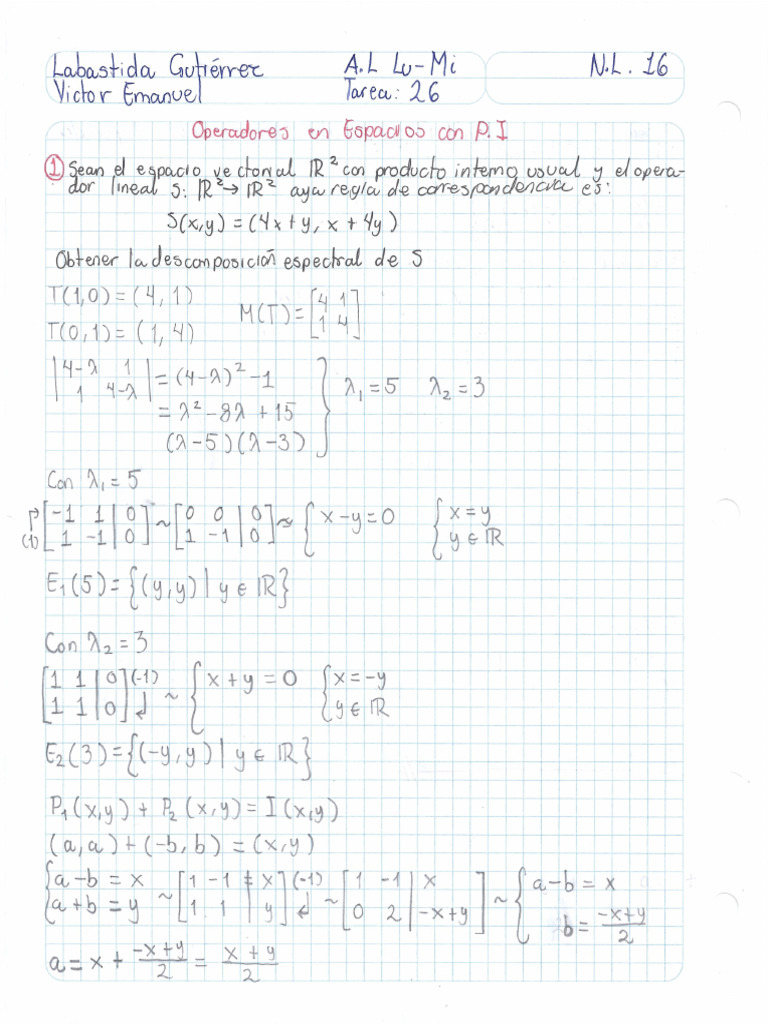 Labastida Gutiérrez A.L Lu-Mi N.L. 16
Victor Emanuel Tarea: 26
Operadores en Espacios con P.I
① Sean el espacio vectorial ℝ² con producto interno usual y el opera-
dor lineal S: ℝ²→ℝ² cuya regla de correspondencia es:
S(x,y) = (4x+y, x+4y)
Obtener la descomposición espectral de S
T(1,0) = (4, 1)
T(0,1) = (1, 4)
M(T) = [4 1; 1 4]
|4-λ 1; 1 4-λ| = (4-λ)² -1
= λ² -8λ + 15
(λ-5)(λ-3)
} λ₁ = 5 λ₂ = 3
Con λ₁ = 5
(1) [-1 1 | 0; 1 -1 | 0] ~ [0 0 | 0; 1 -1 | 0] ≈ { x-y=0 { x=y; y∈ℝ
E₁(5) = {(y,y) | y∈ℝ}
Con λ₂ = 3
[1 1 | 0; 1 1 | 0] (-1) ↲ ~ { x+y=0 { x=-y; y∈ℝ
E₂(3) = {(-y,y) | y∈ℝ}
P₁(x,y) + P₂(x,y) = I(x,y)
(a,a) + (-b,b) = (x,y)
{ a-b=x; a+b=y ~ [1 -1 | x; 1 1 | y] (-1) ↲ ~ [1 -1 | x; 0 2 | -x+y] ~ { a-b=x; b=(-x+y)/2
a = x + (-x+y)/2 = (x+y)/2